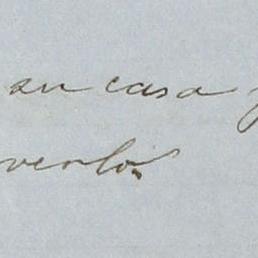 su casa
verlo.